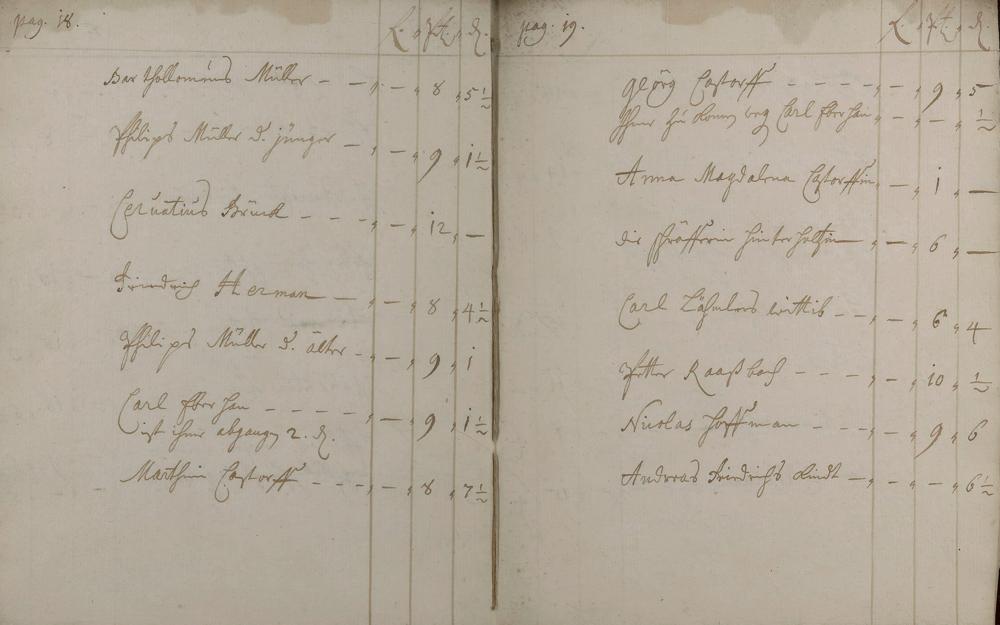 pag. 18.
R. Pf. d.
Bartholloméus Müller – – „ – „ 8 „ 5 ½
Philips Müller d. jünger – „ – „ 9 „ 1 ½
Ceruatius Brück – – – „ – „ 12 „ –
Friedrich Herman – „ – „ 8 „ 4 ½
Philips Müller d. älter – „ – „ 9 „ 1
Carl Eberhan – – – – „ – „ 9 „ 1 ½
ist ihme abgangen 2. d.
Marthin Castorff – – – „ – „ 8 „ 7 ½
pag. 19.
R. Pf. d.
Georg Castorff – – – – „ – „ 9 „ 5
Ihme zu kommen weg Carl Eberhan „ – „ – „ ½
Anna Magdalena Castorffin „ – „ 1 „ –
die hinterhaltzin „ – „ 6 „ –
Carl wittib – – „ – „ 6 „ 4
Petter Raaßbach – – – „ – „ 10 „ ½
Nicolas Hoffman – – – „ – „ 9 „ 6
Andreas Friedrichs Kindt – „ – „ – „ 6 ½